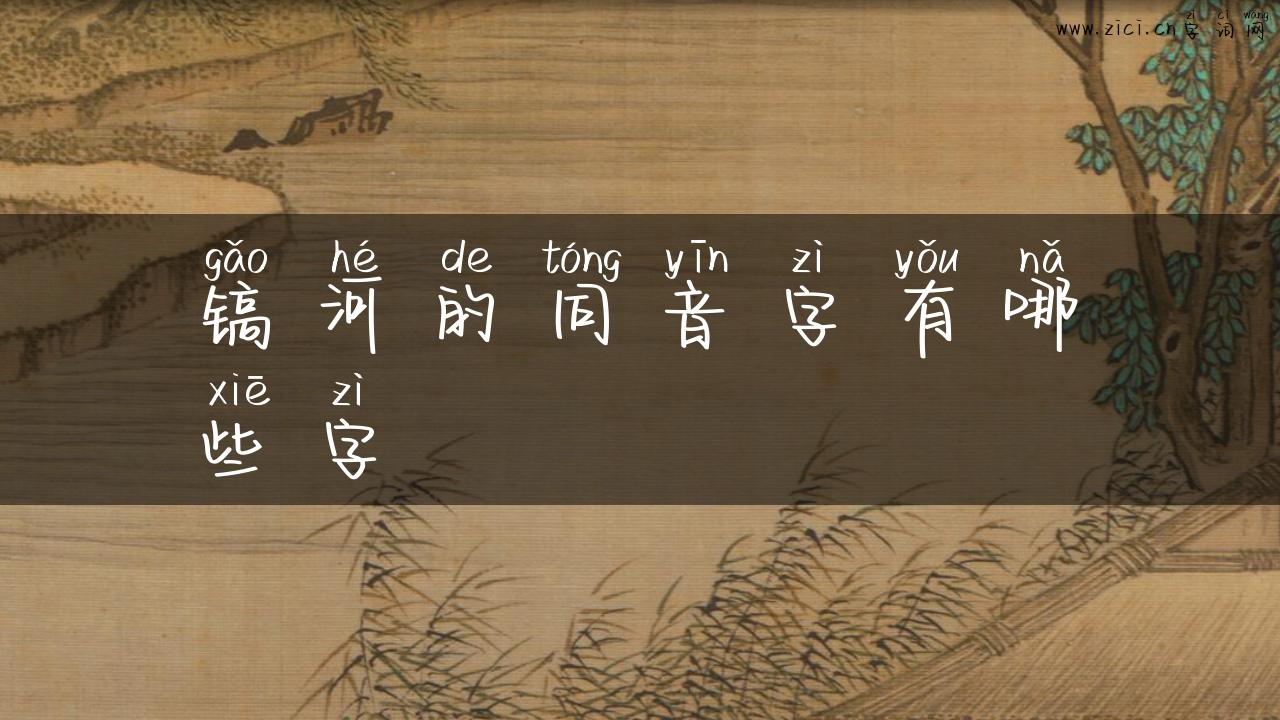 zì cí wǎng
www.zici.cn 字 词 网
gǎo hé de tóng yīn zì yǒu nǎ
镐 河 的 同 音 字 有 哪
xiē zì
些 字